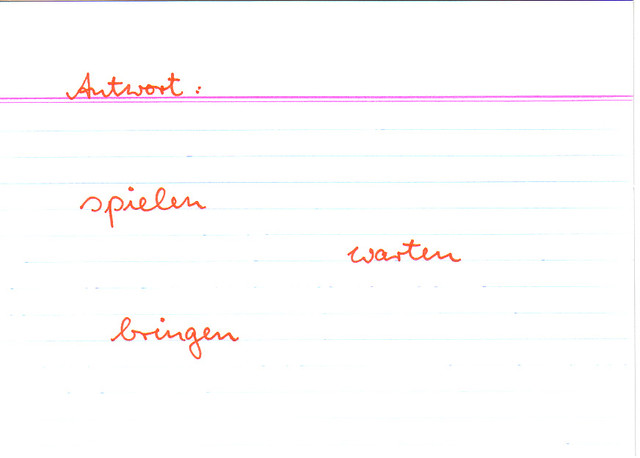 Antwort:
spielen
warten
bringen